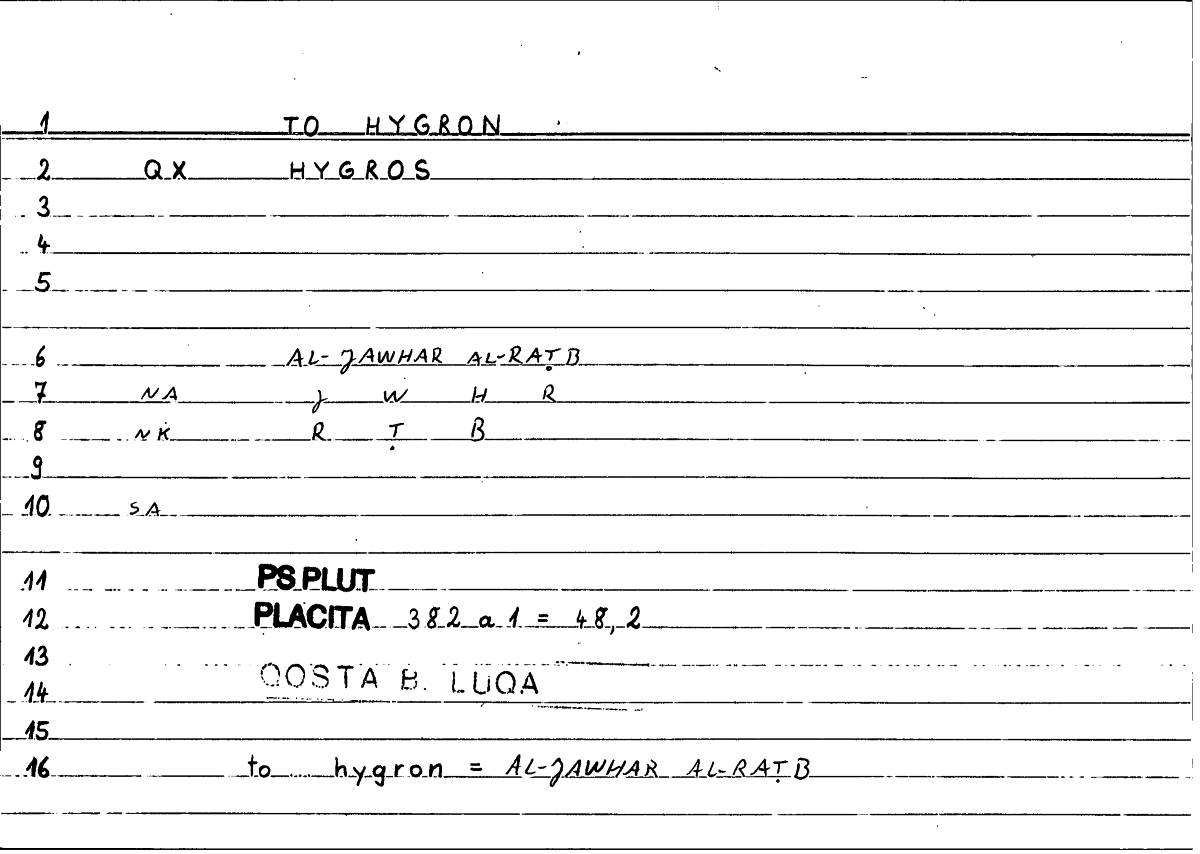 1 TO HYGRON
2 QX HYGROS
3
4
5
6 AL-JAWHAR AL-RAṬB
7 NA J W H R
8 NK R Ṭ B
9
10 SA
11 PS.PLUT
12 PLACITA 382 a 1 = 48, 2
13
14 QOSTA B. LUQA
15
16 to hygron = AL-JAWHAR AL-RAṬB